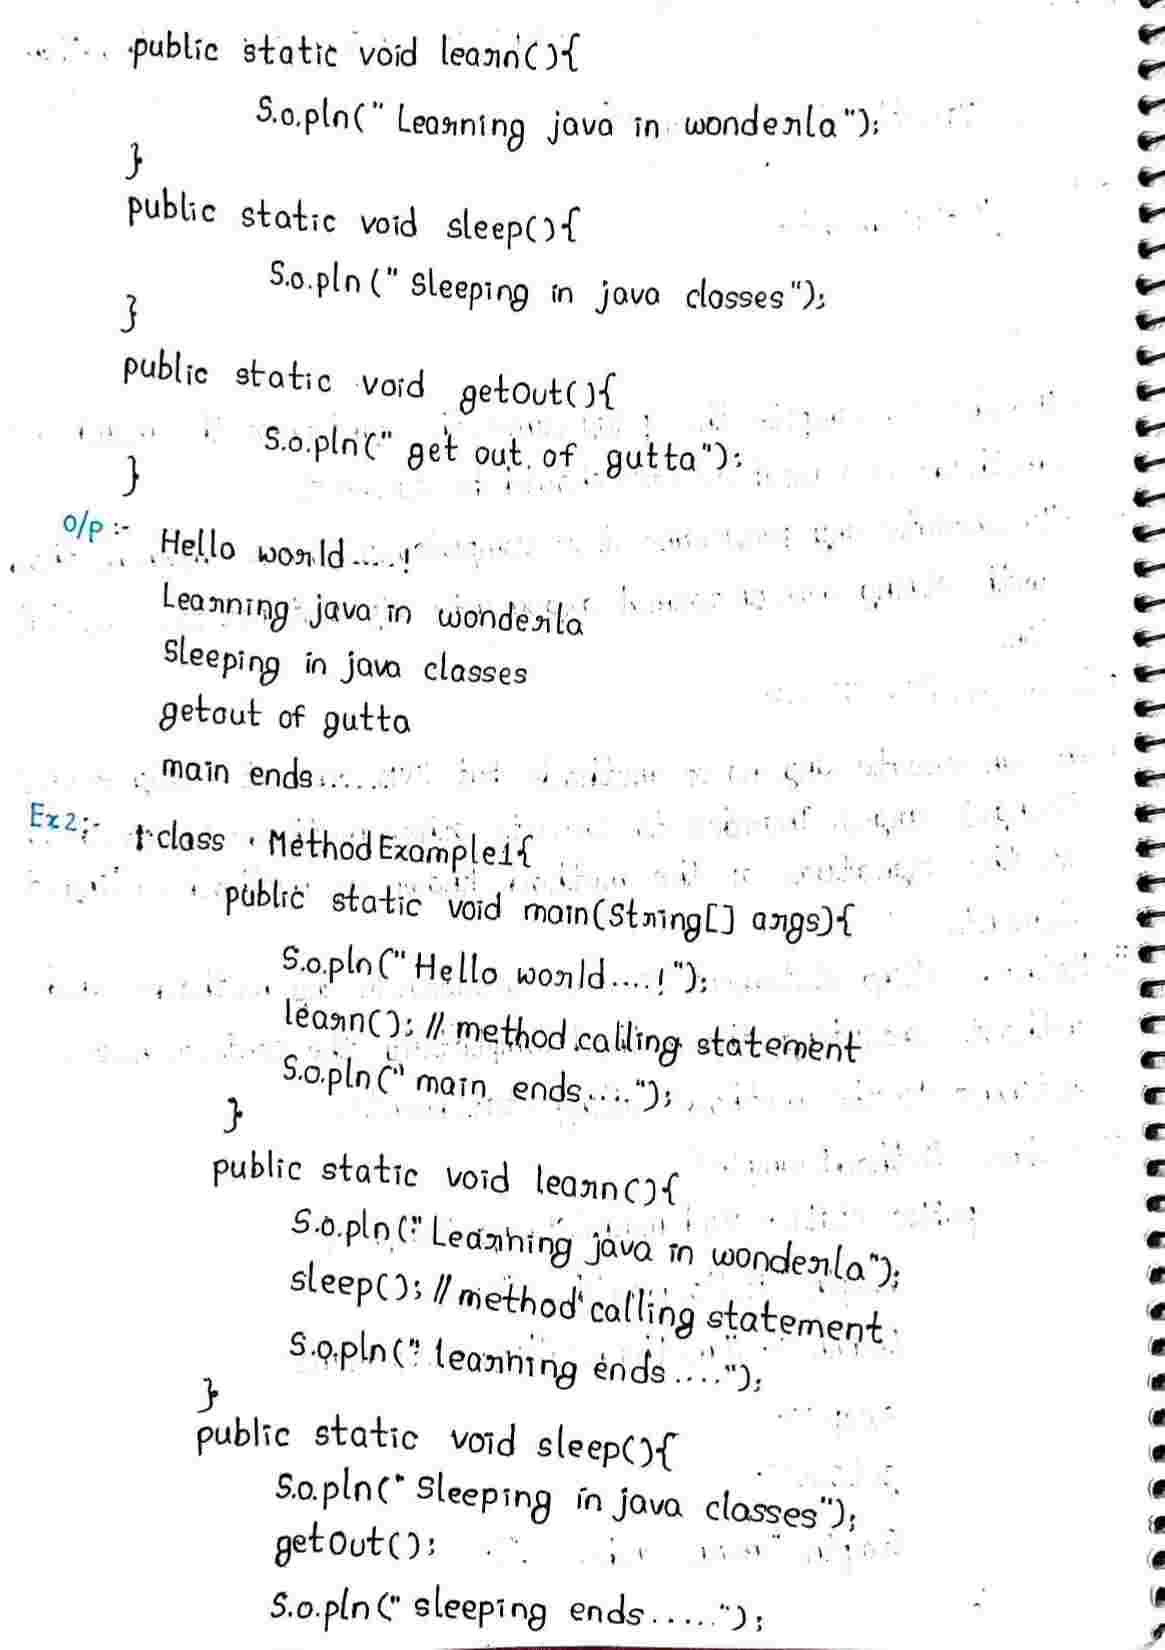 public static void learn(){
S.o.pln(" Learning java in wonderla");
}
public static void sleep(){
S.o.pln(" Sleeping in java classes");
}
public static void getOut(){
S.o.pln(" get out of gutta");
}
O/P :- Hello world.....!
Learning java in wonderla
Sleeping in java classes
getout of gutta
main ends.......
Ex2:- class MethodExample1{
public static void main(String[] args){
S.o.pln("Hello world....!");
learn(); // method calling statement
S.o.pln(" main ends.....");
}
public static void learn(){
S.o.pln(" Learning java in wonderla");
sleep(); // method calling statement
S.o.pln(" learning ends....");
}
public static void sleep(){
S.o.pln(" Sleeping in java classes");
getOut();
S.o.pln(" sleeping ends.....");